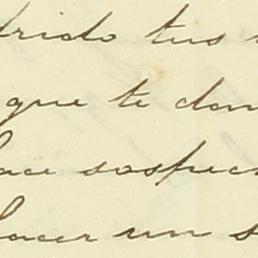 rido tus
que te dan
ace sospec
hacer un s